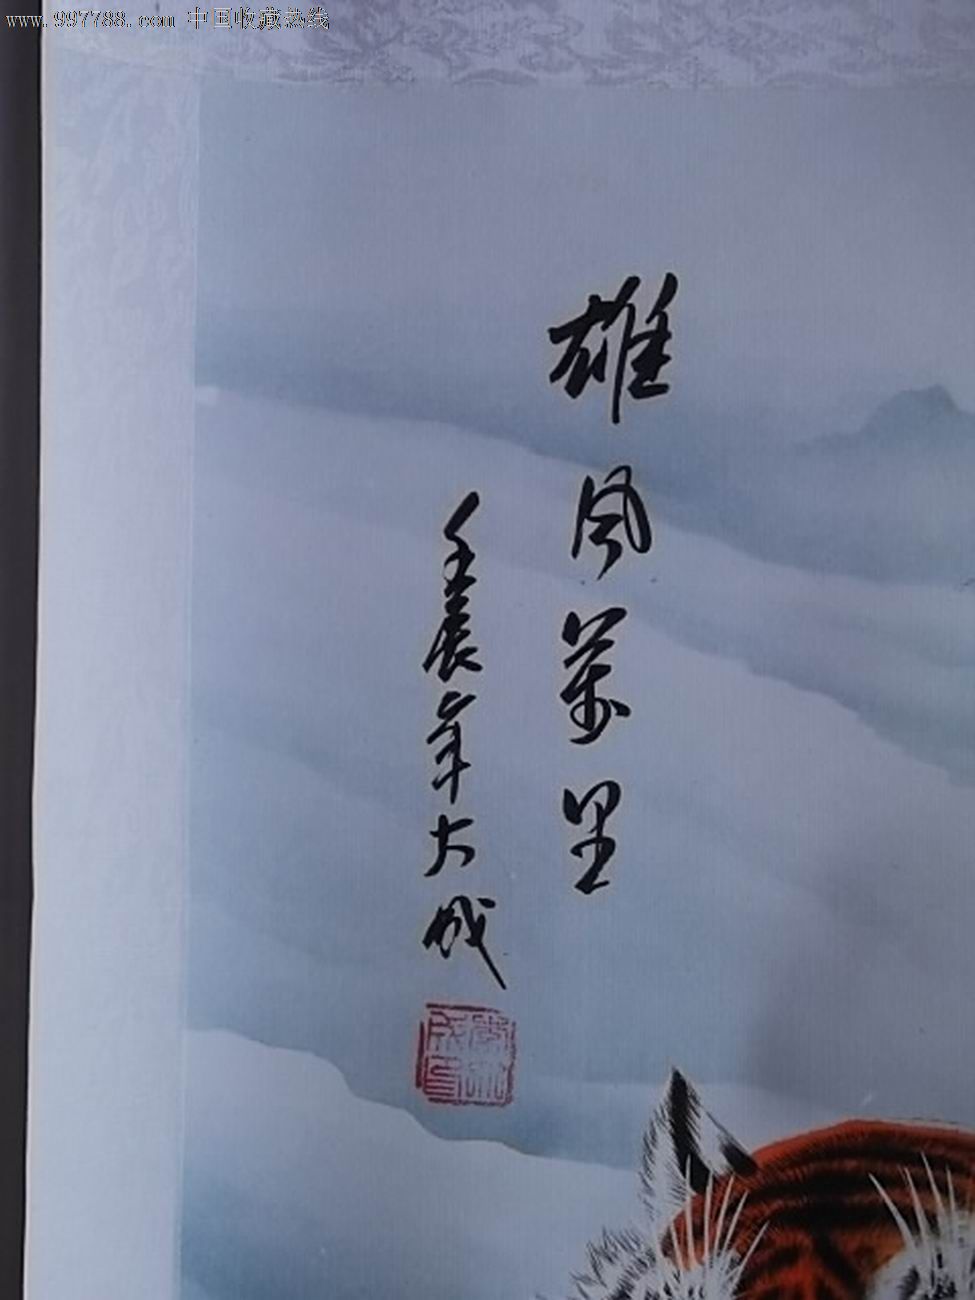 www.997788.com 中国收藏热线
雄风萬里
壬辰年大成